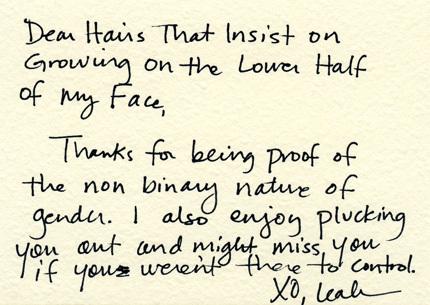 Dear Hairs That Insist on
Growing on the Lower Half
of my Face,
Thanks for being proof of
the non binary nature of
gender. I also enjoy plucking
you out and might miss you
if you weren't there to control.
XO, Leah